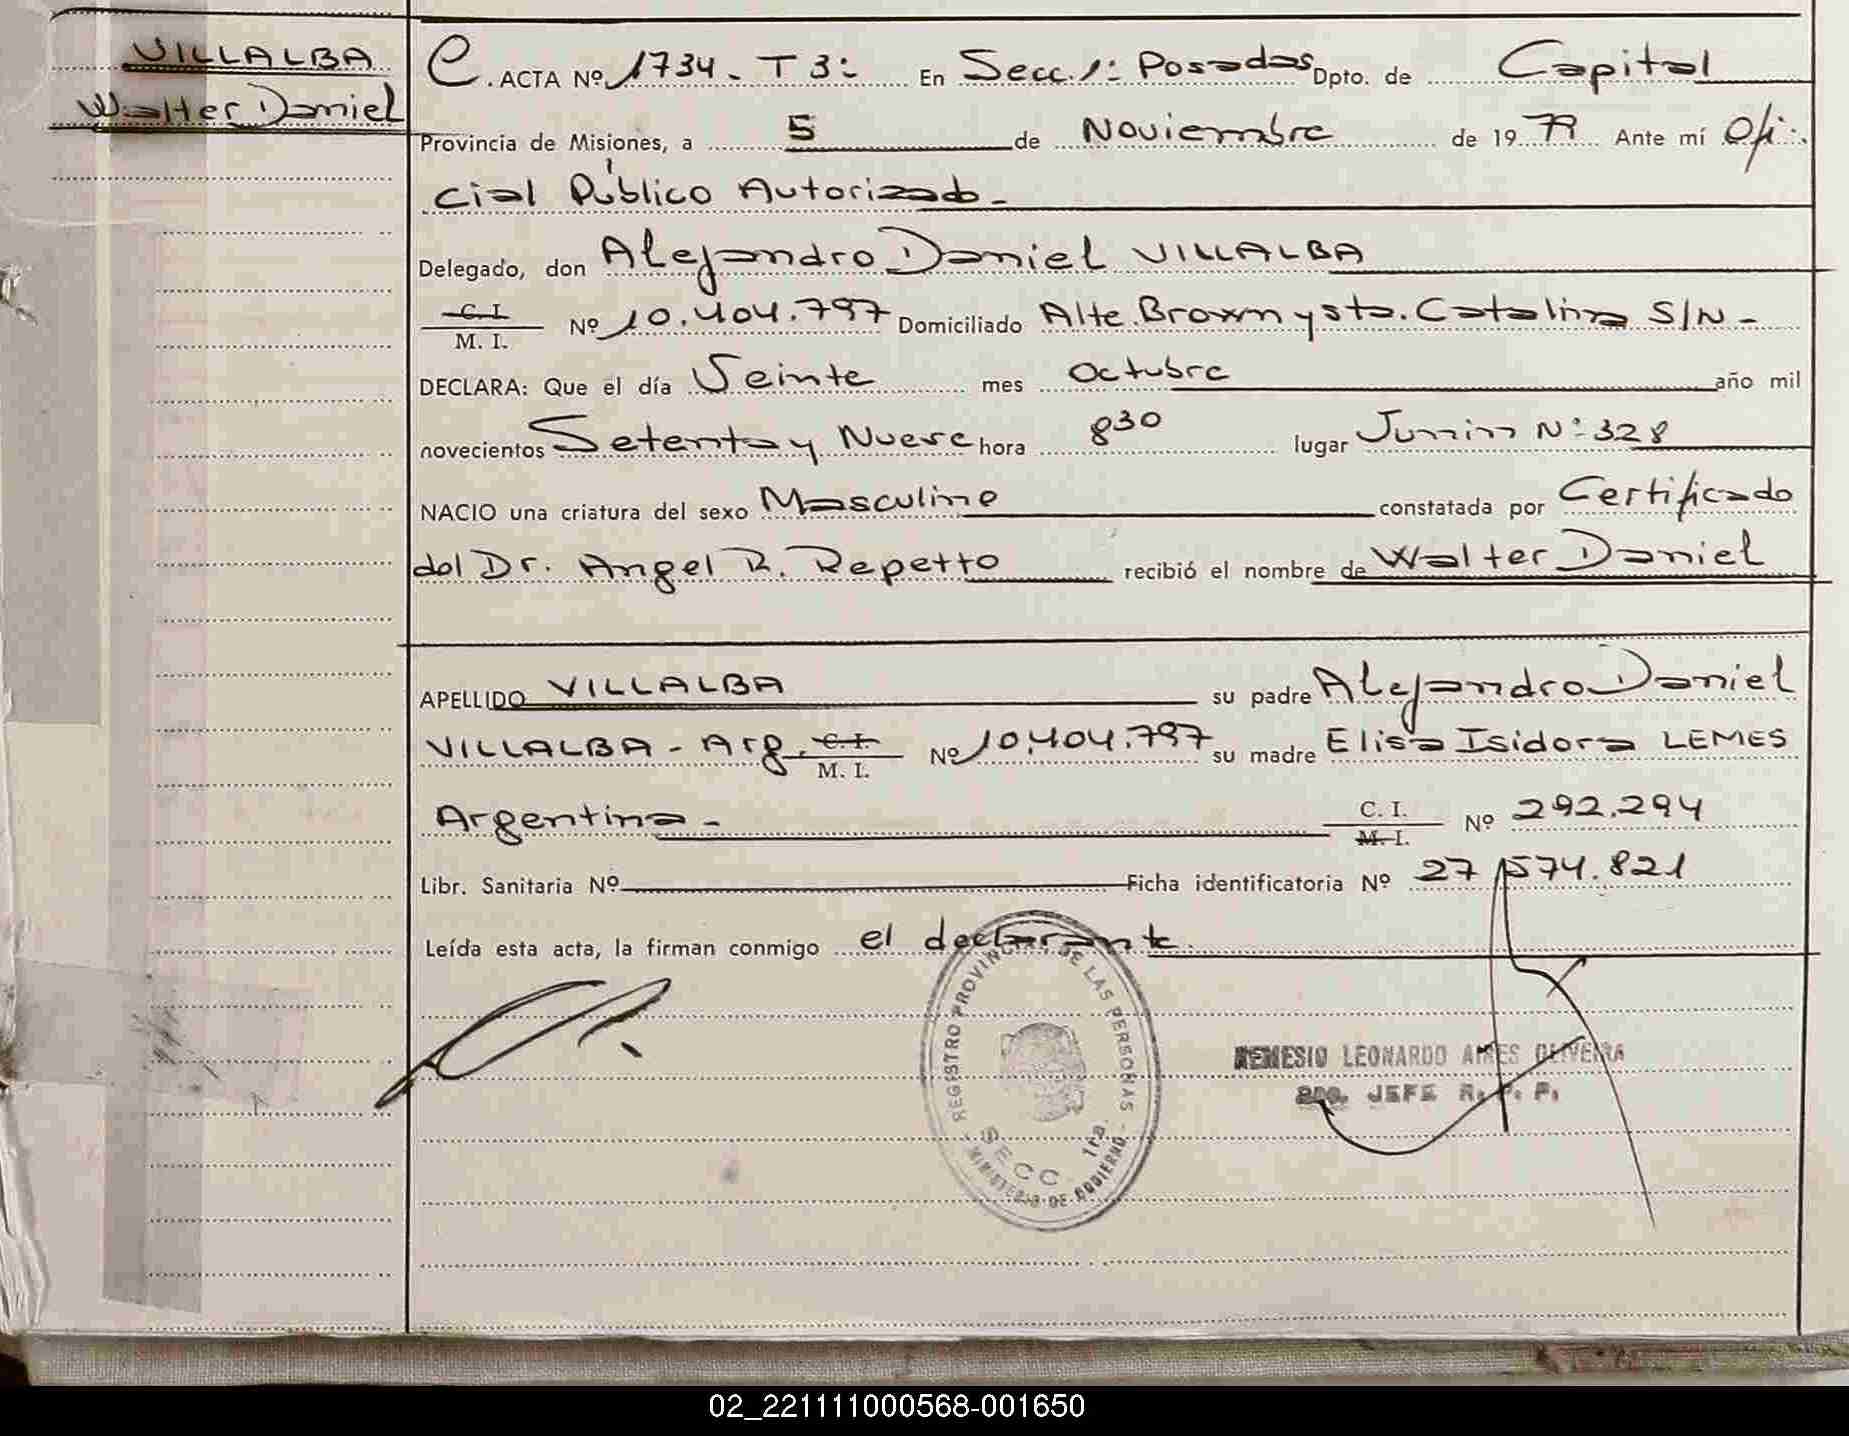 VILLALBA
Walter Daniel
C. ACTA Nº 1734 - T 3: En Secc. 1: Posadas Dpto. de Capital
Provincia de Misiones, a 5 de Noviembre de 19 79 Ante mí Ofi:
cial Público Autorizado -
Delegado, don Alejandro Daniel VILLALBA
C. I.
M. I. Nº 10.404.797 Domiciliado Alte. Brown y sta. Catalina S/N -
DECLARA: Que el día Veinte mes Octubre año mil
novecientos Setenta y Nueve hora 8 30 lugar Junin Nº 328
NACIO una criatura del sexo Masculino constatada por Certificado
del Dr. Angel R. Repetto recibió el nombre de Walter Daniel
APELLIDO VILLALBA su padre Alejandro Daniel
VILLALBA - Arg. C. I. M. I. Nº 10.404.797 su madre Elisa Isidora LEMES
Argentina - C. I. M. I. Nº 292.294
Libr. Sanitaria Nº Ficha identificatoria Nº 27 574.821
Leída esta acta, la firman conmigo el declarante
REGISTRO PROVINCIAL DE LAS PERSONAS
SECC 1ra.
MINISTERIO DE GOBIERNO
NEMESIO LEONARDO AIRES OLIVEIRA
JEFE R. P. P.
02_221111000568-001650